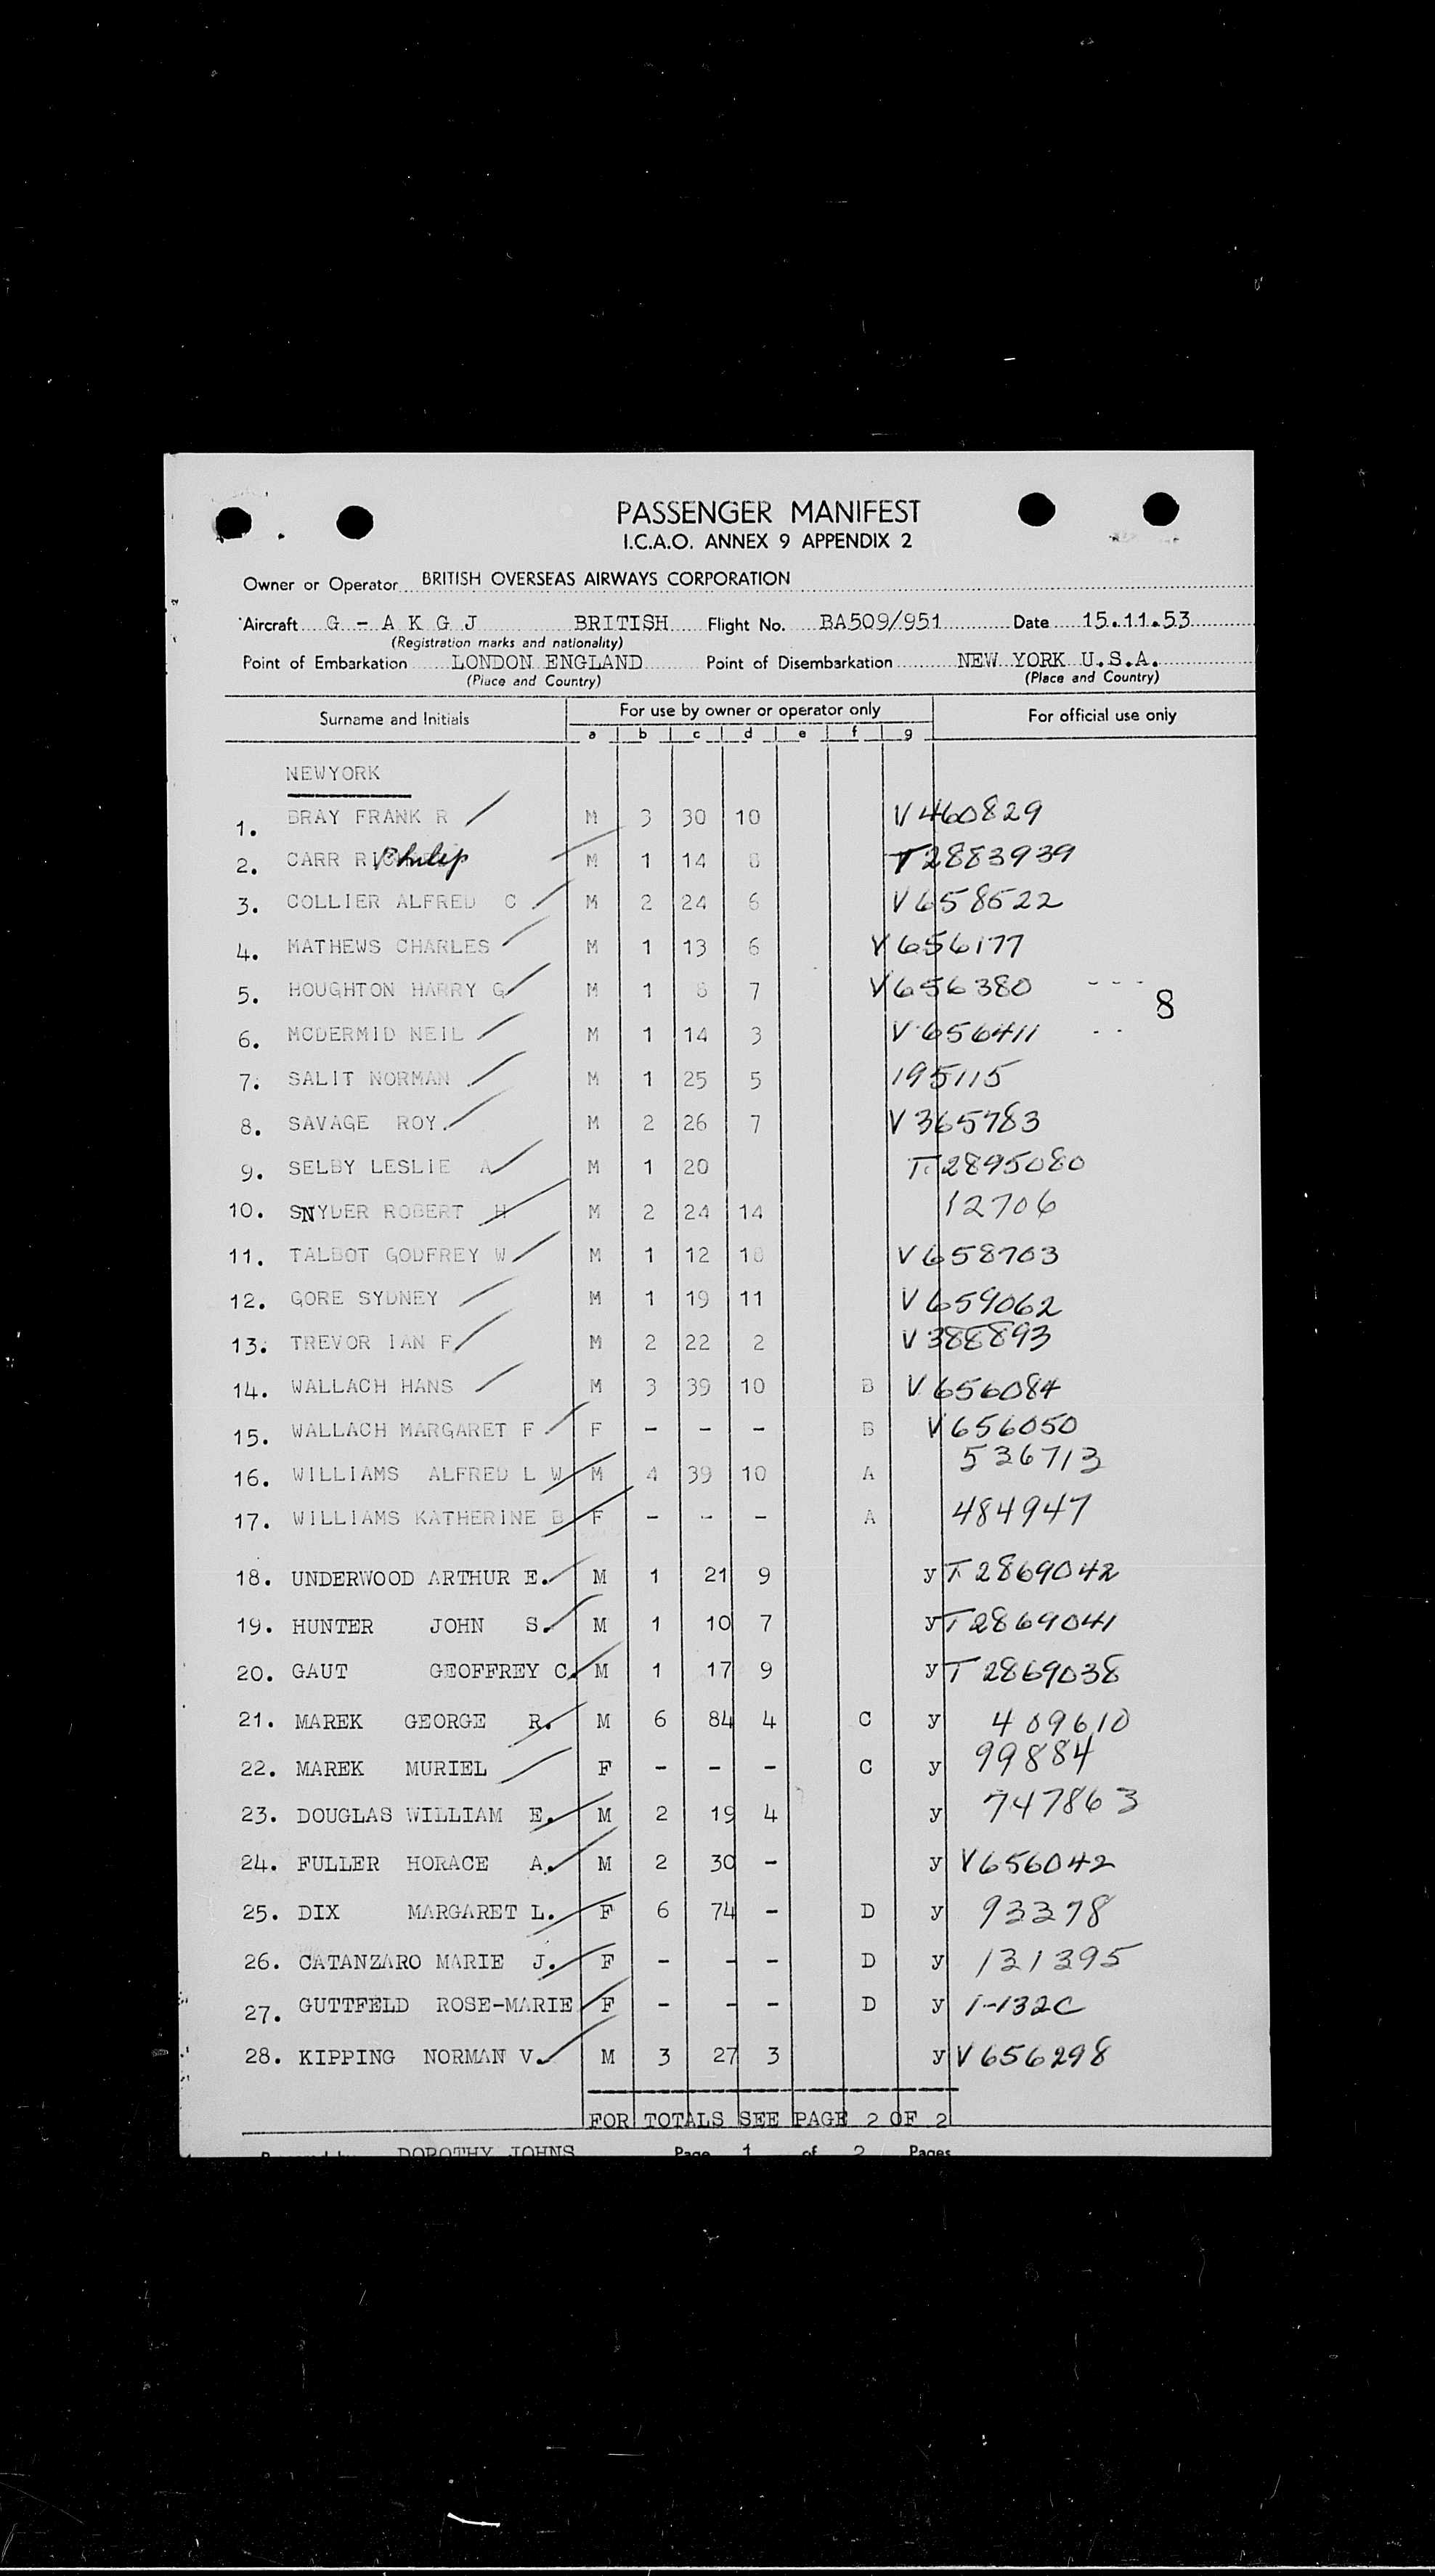 PASSENGER MANIFEST
I.C.A.O. ANNEX 9 APPENDIX 2
Owner or Operator BRITISH OVERSEAS AIRWAYS CORPORATION
Aircraft G - A K G J BRITISH Flight No. BA509/951 Date 15.11.53
(Registration marks and nationality)
Point of Embarkation LONDON ENGLAND Point of Disembarkation NEW YORK U.S.A.
(Place and Country) (Place and Country)
Surname and Initials For use by owner or operator only For official use only
a b c d e f g
NEWYORK
1. BRAY FRANK R M 3 30 10 V 460829
2. CARR Philip M 1 14 8 T 2883939
3. COLLIER ALFRED C M 2 24 6 V 658522
4. MATHEWS CHARLES M 1 13 6 V 656177
5. HOUGHTON HARRY G M 1 8 7 V 656380 - - -
8
6. MCDERMID NEIL M 1 14 3 V 656411 - -
7. SALIT NORMAN M 1 25 5 195115
8. SAVAGE ROY. M 2 26 7 V 365783
9. SELBY LESLIE A M 1 20 T. 2895080
10. SNYDER ROBERT H M 2 24 14 12706
11. TALBOT GODFREY W M 1 12 10 V 658703
12. GORE SYDNEY M 1 19 11 V 659062
13. TREVOR IAN F M 2 22 2 V 388893
14. WALLACH HANS M 3 39 10 B V 656084
15. WALLACH MARGARET F F - - - B V 656050
16. WILLIAMS ALFRED L W M 4 39 10 A 536713
17. WILLIAMS KATHERINE B F - - - A 484947
18. UNDERWOOD ARTHUR E. M 1 21 9 y T 2869042
19. HUNTER JOHN S. M 1 10 7 y T 2869041
20. GAUT GEOFFREY C. M 1 17 9 y T 2869038
21. MAREK GEORGE R. M 6 84 4 C y 409610
22. MAREK MURIEL F - - - C y 99884
23. DOUGLAS WILLIAM E. M 2 19 4 y 747863
24. FULLER HORACE A. M 2 30 - y V 656042
25. DIX MARGARET L. F 6 74 - D y 93378
26. CATANZARO MARIE J. F - - - D y 131395
27. GUTTFELD ROSE-MARIE F - - - D y 1-132C
28. KIPPING NORMAN V. M 3 27 3 y V 656298
FOR TOTALS SEE PAGE 2 OF 2
DOROTHY JOHNS Page 1 of 2 Pages